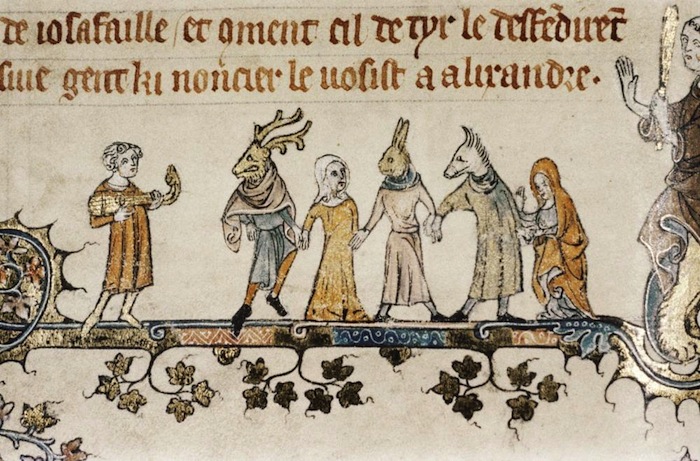 de iosafaille / et qment cil de tyr le desfēdirēt
siue gent ki noncier le uosist a alixandre.